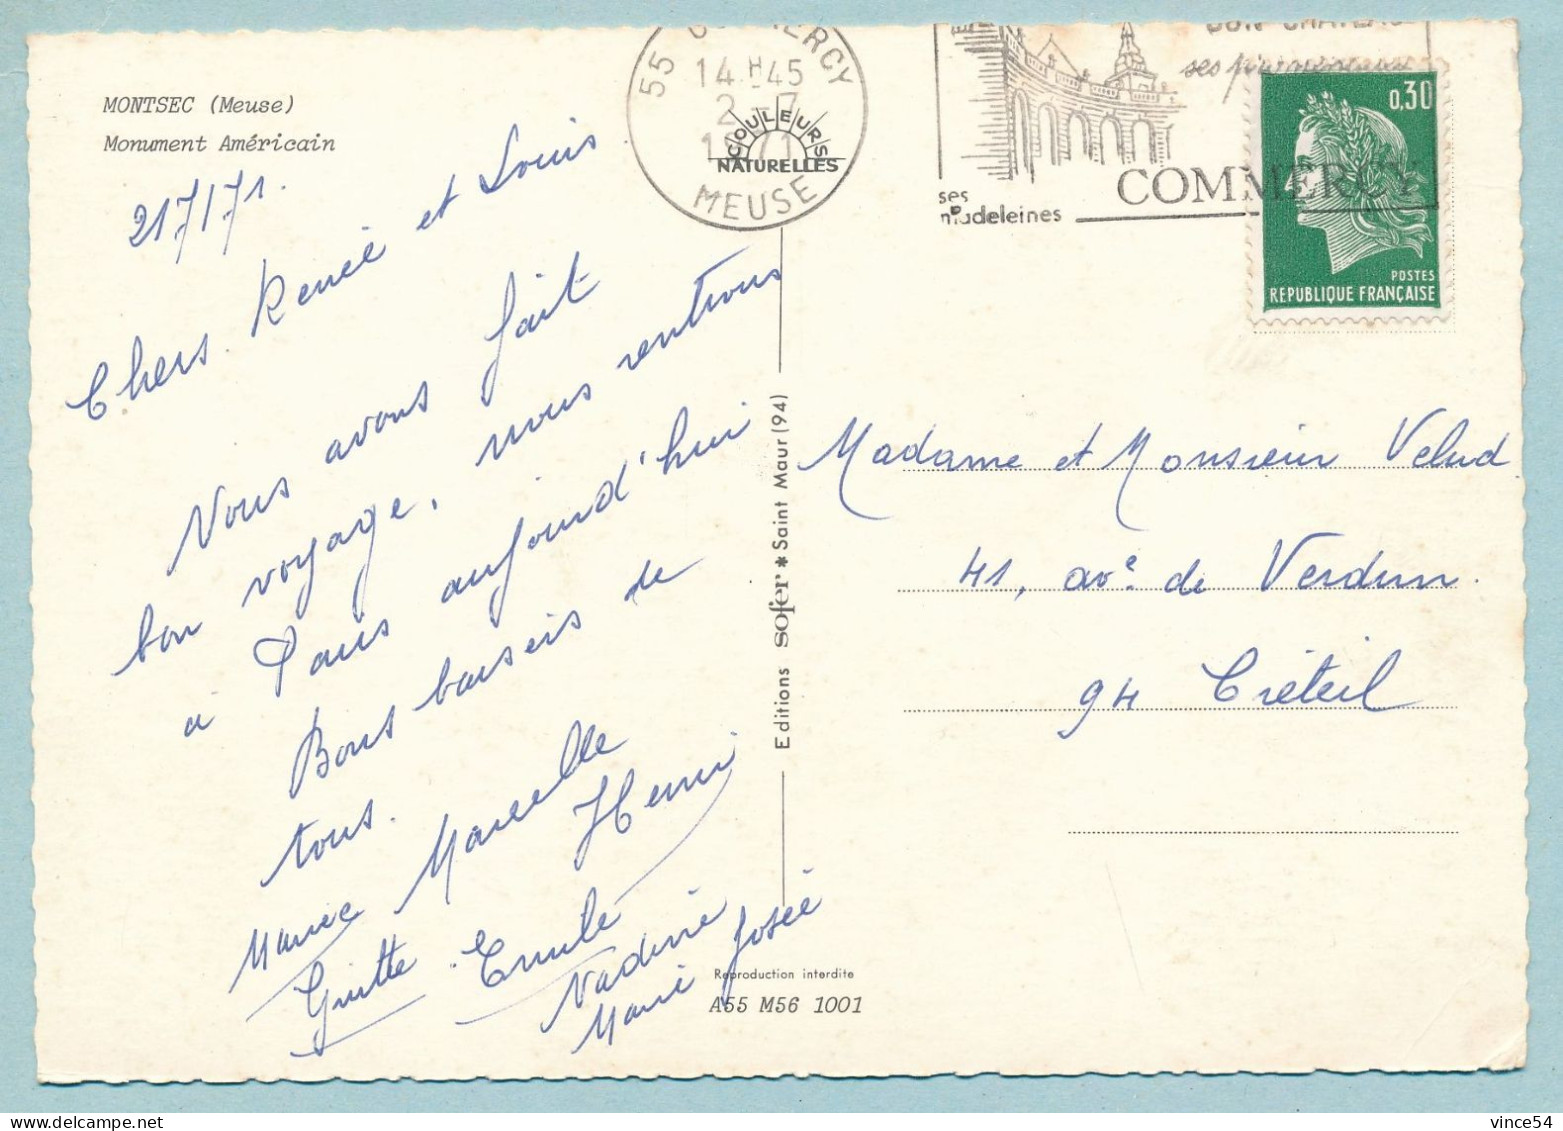 MONTSEC (Meuse)
Monument Américain
2/7/71.
Chers Renée et Louis
Nous avons fait
bon voyage, nous rentrons
à Paris aujourd'hui
Bons baisers de
tous.
Marcelle
Henri
Guitte Emile
Nadine
Marie Josée
55 COMMERCY
14H45
2-7
1971
MEUSE
COULEURS
NATURELLES
SON CHATEAU
ses
ses
madeleines
COMMERCY
0,30
POSTES
REPUBLIQUE FRANÇAISE
Editions sofer * Saint Maur (94)
Madame et Monsieur Velud
41, av.e de Verdun.
94 Créteil
Reproduction interdite
A55 M56 1001
vince54